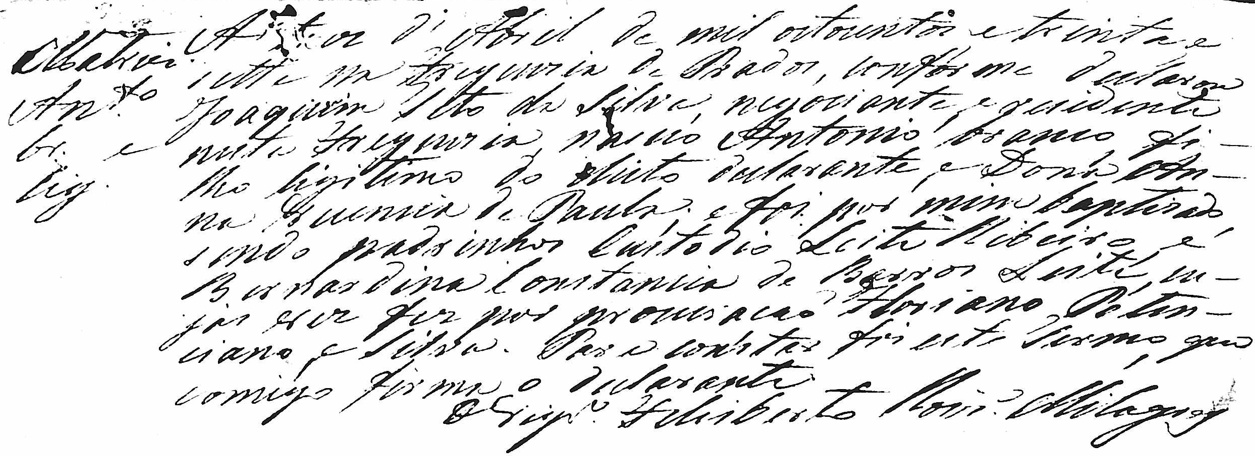 Matriz
Anto
br. e
lig.
Aos tez di Abril de mil oitocentos e trinta e
sette na Freguezia de Prados, conforme declarou
Joaquim Lto da Silva, negociante, e rezidente
nesta Freguezia, nasceo Antonio, branco, fi-
lho ligitimo do dicto declarante, e Dona An-
na de Paula, e foi por mim baptizado,
sendo padrinhos Custodio Leite Ribeiro, e
Bernardina Constancia de Barros Leite, cu-
jas vez fez por procuracaõ Floriano
e Silva. Para constar fis este termo, que
comigo firma o declarante
O Vigro. Felisberto Roiz. Milagres